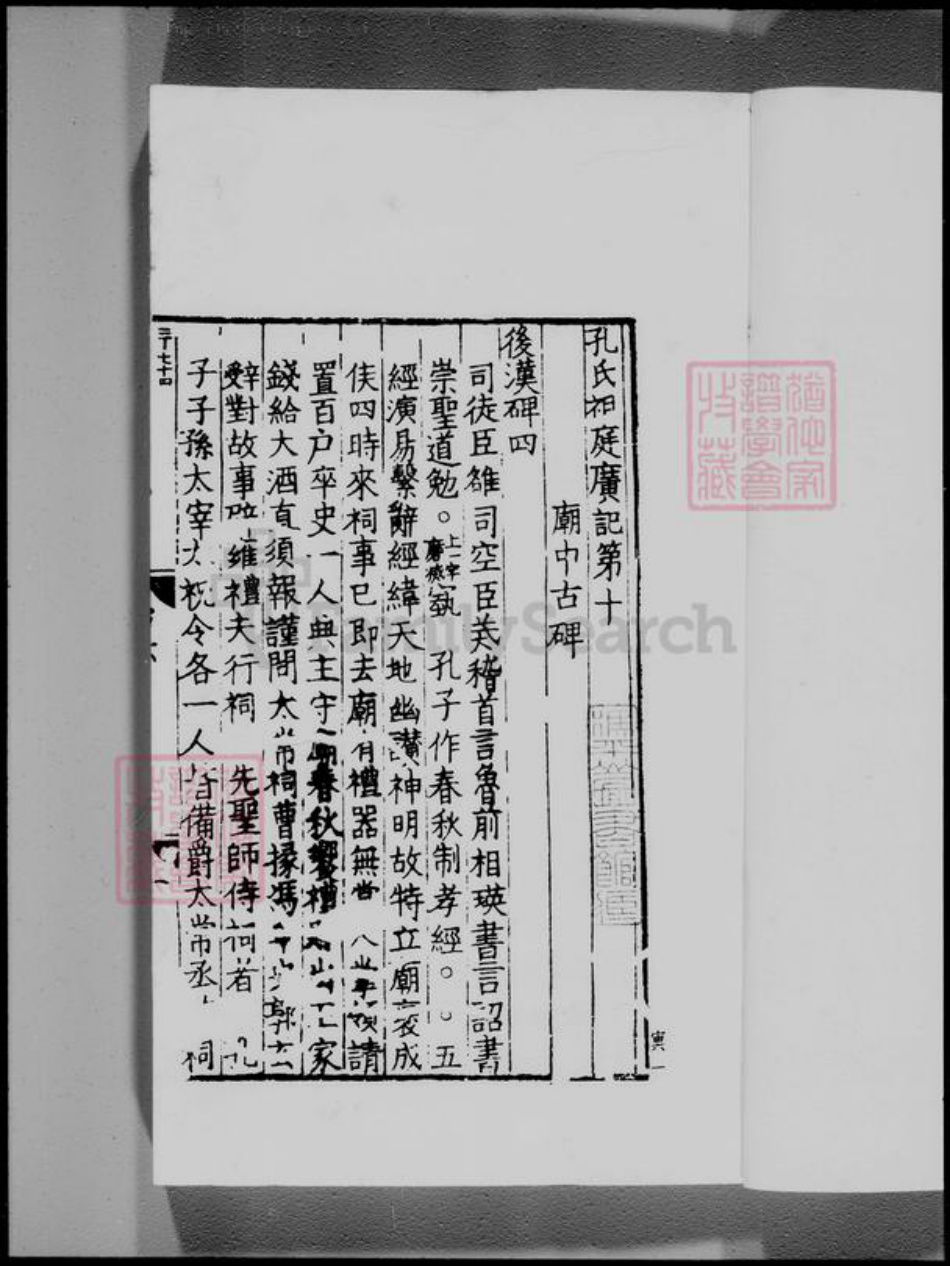 孔氏祖庭廣記第十
廟中古碑
後漢碑四
司徒臣雄司空臣戒稽首言魯前相瑛書言詔書
崇聖道勉。上一字磨滅埶孔子作春秋制孝經。。五
經演易繫辭經緯天地幽讚神明故特立廟褒成
侯四時來祠事已即去廟有禮器無常人掌領請
置百戶卒史一人典主守廟春秋饗禮
家
錢給大酒直須報謹問太常祠曹掾馮牟史郭玄
辭對故事辟雍禮未行祠先聖師侍祠者孔
子子孫太宰太祝令各一人皆備爵太常丞
祠
三十七十四
寅一
FamilySearch
譜學會